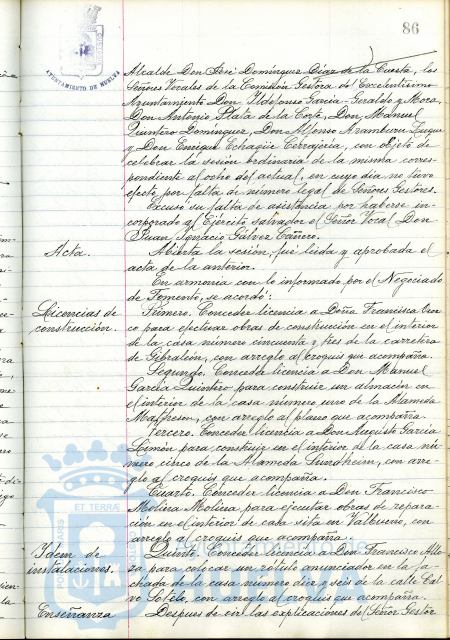 86
AYUNTAMIENTO DE HUELVA
Alcalde Don José Domínguez Díaz de la Cuesta, los
Señores Vocales de la Comisión Gestora del Excelentísimo
Ayuntamiento Don Ildefonso García-Geraldo y Mora,
Don Antonio Plata de la Corte, Don Manuel
Quintero Domínguez, Don Alfonso Aramburu Luque
y Don Enrique Echagüe Cerrajería, con objeto de
celebrar la sesión ordinaria de la misma corres-
pondiente al ocho del actual, en cuyo día no tuvo
efecto por falta de número legal de Señores Gestores.
Excusó su falta de asistencia por haberse in-
corporado al Ejército salvador el Señor Vocal Don
Juan Ignacio Gálvez Cañero.
Acta.
Abierta la sesión, fué leida y aprobada el
acta de la anterior.
En armonia con lo informado por el Negociado
de Fomento, se acordó:
Licencias de
construcción.
Primero. Conceder licencia a Doña Francisca Oroz-
co para efectuar obras de construcción en el interior
de la casa número cincuenta y tres de la carretera
de Gibraleón, con arreglo al croquis que acompaña.
Segundo. Conceder licencia a Don Manuel
García Quintero para construir un almacén en
el interior de la casa número uno de la Alameda
con arreglo al plano que acompaña.
Tercero. Conceder licencia a Don Augusto García
Limón para construir en el interior de la casa nú-
mero cinco de la Alameda Sundheim, con arre-
glo al croquis que acompaña.
Cuarto. Conceder licencia a Don Francisco
Molina Molina para ejecutar obras de repara-
ción en el interior de casa sita en Valbueno, con
arreglo al croquis que acompaña.
Idem de
instalaciones.
Quinto. Conceder licencia a Don Francisco
para colocar un rótulo anunciador en la fa-
chada de la casa número diez y seis de la calle Cal-
vo Sotelo, con arreglo al croquis que acompaña.
Enseñanza
Despues de oir las explicaciones del Señor Gestor
ET TERRAE